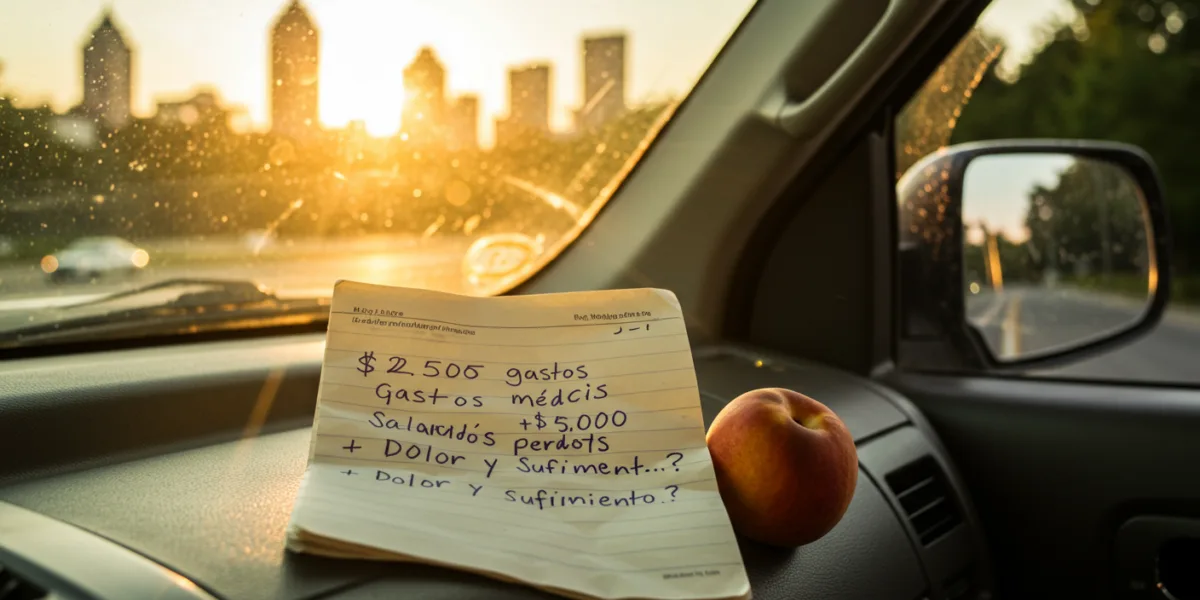 $2505 gastos
Gastos médcis
+$5,000
Salaridós perdots
+ Dolor y Sufiment...?
+ Dolor y sufimiento.?